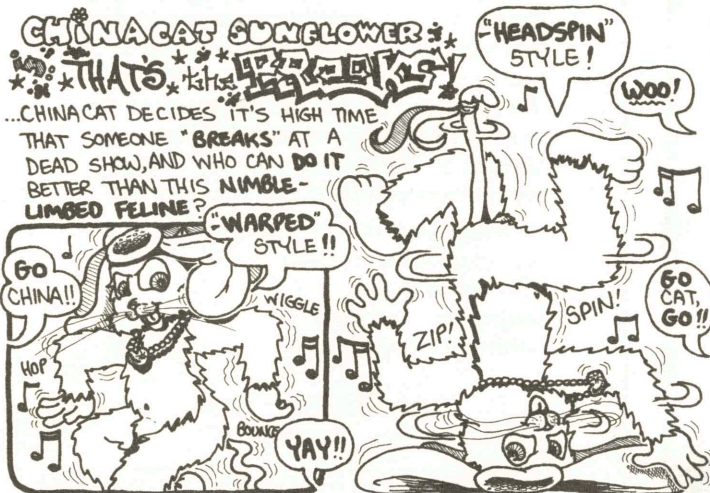 CHINACAT SUNFLOWER:
in THAT'S the BREAKS!
...CHINACAT DECIDES IT'S HIGH TIME
THAT SOMEONE "BREAKS" AT A
DEAD SHOW, AND WHO CAN DO IT
BETTER THAN THIS NIMBLE-
LIMBED FELINE?
GO
CHINA!!
-"WARPED"
STYLE!!
WIGGLE
HOP
BOUNCE
YAY!!
-"HEADSPIN"
STYLE!
WOO!
ZIP!
SPIN!
GO
CAT,
GO!!